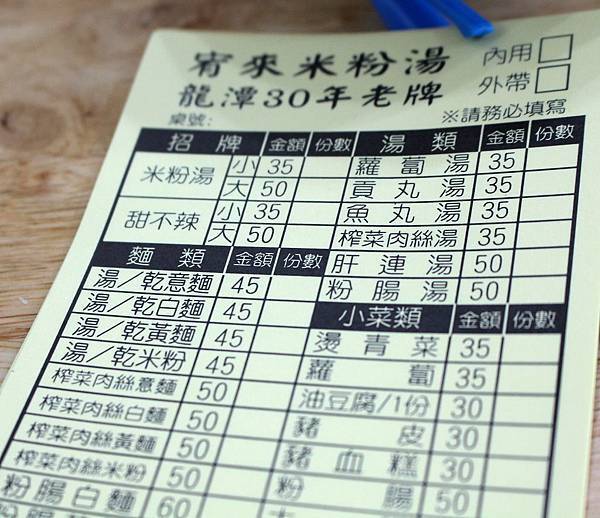 甯來米粉湯
內用□
龍潭30年老牌
外帶□
桌號:
※請務必填寫
招牌 金額 份數
米粉湯 小 35
大 50
甜不辣 小 35
大 50
麵類 金額 份數
湯／乾意麵 45
湯／乾白麵 45
湯／乾黃麵 45
湯／乾米粉 45
榨菜肉絲意麵 50
榨菜肉絲白麵 50
榨菜肉絲黃麵 50
榨菜肉絲米粉 50
粉腸白麵 60
湯類 金額 份數
蘿蔔湯 35
貢丸湯 35
魚丸湯 35
榨菜肉絲湯 35
肝連湯 50
粉腸湯 50
小菜類 金額 份數
燙青菜 35
蘿蔔 35
油豆腐/1份 30
豬皮 30
豬血糕 30
粉腸 50